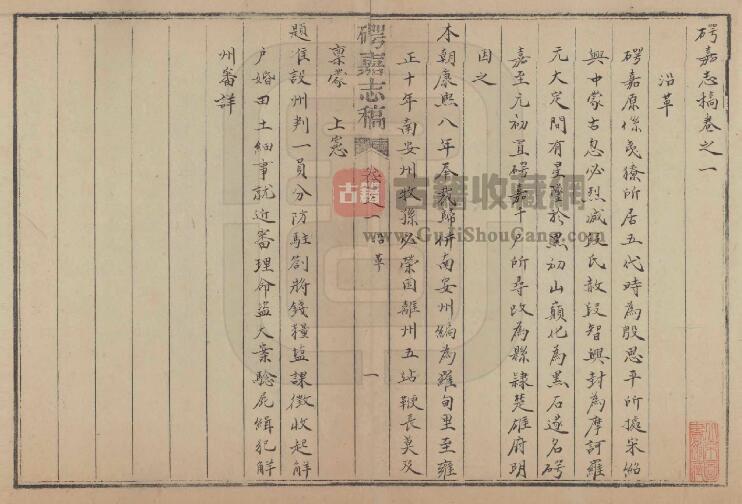 碍嘉志稿卷之一
沿革
碍嘉原係㑩獠所居五代時為段思平所據宋紹
興中蒙古忽必烈滅段氏敵段智興封為摩訶羅
元大定間有星隕於黑初山巔化為黑石遂名碍
嘉至元初置碍嘉千戶所尋改為縣隸楚雄府明
因之
本朝康熙八年奉裁歸併南安州編為雍甸里至雍
正十年南安州牧孫必榮因離州五站鞭長莫及
稟蒙 上憲
碍嘉志稿 卷之一 沿革 一
題准設州判一員分防駐劄將錢糧鹽課徵收起解
戶婚田土細事就近審理命盜大案驗屍緝犯解
州審詳
古籍
古籍收藏網
www.GuJiShouCang.com